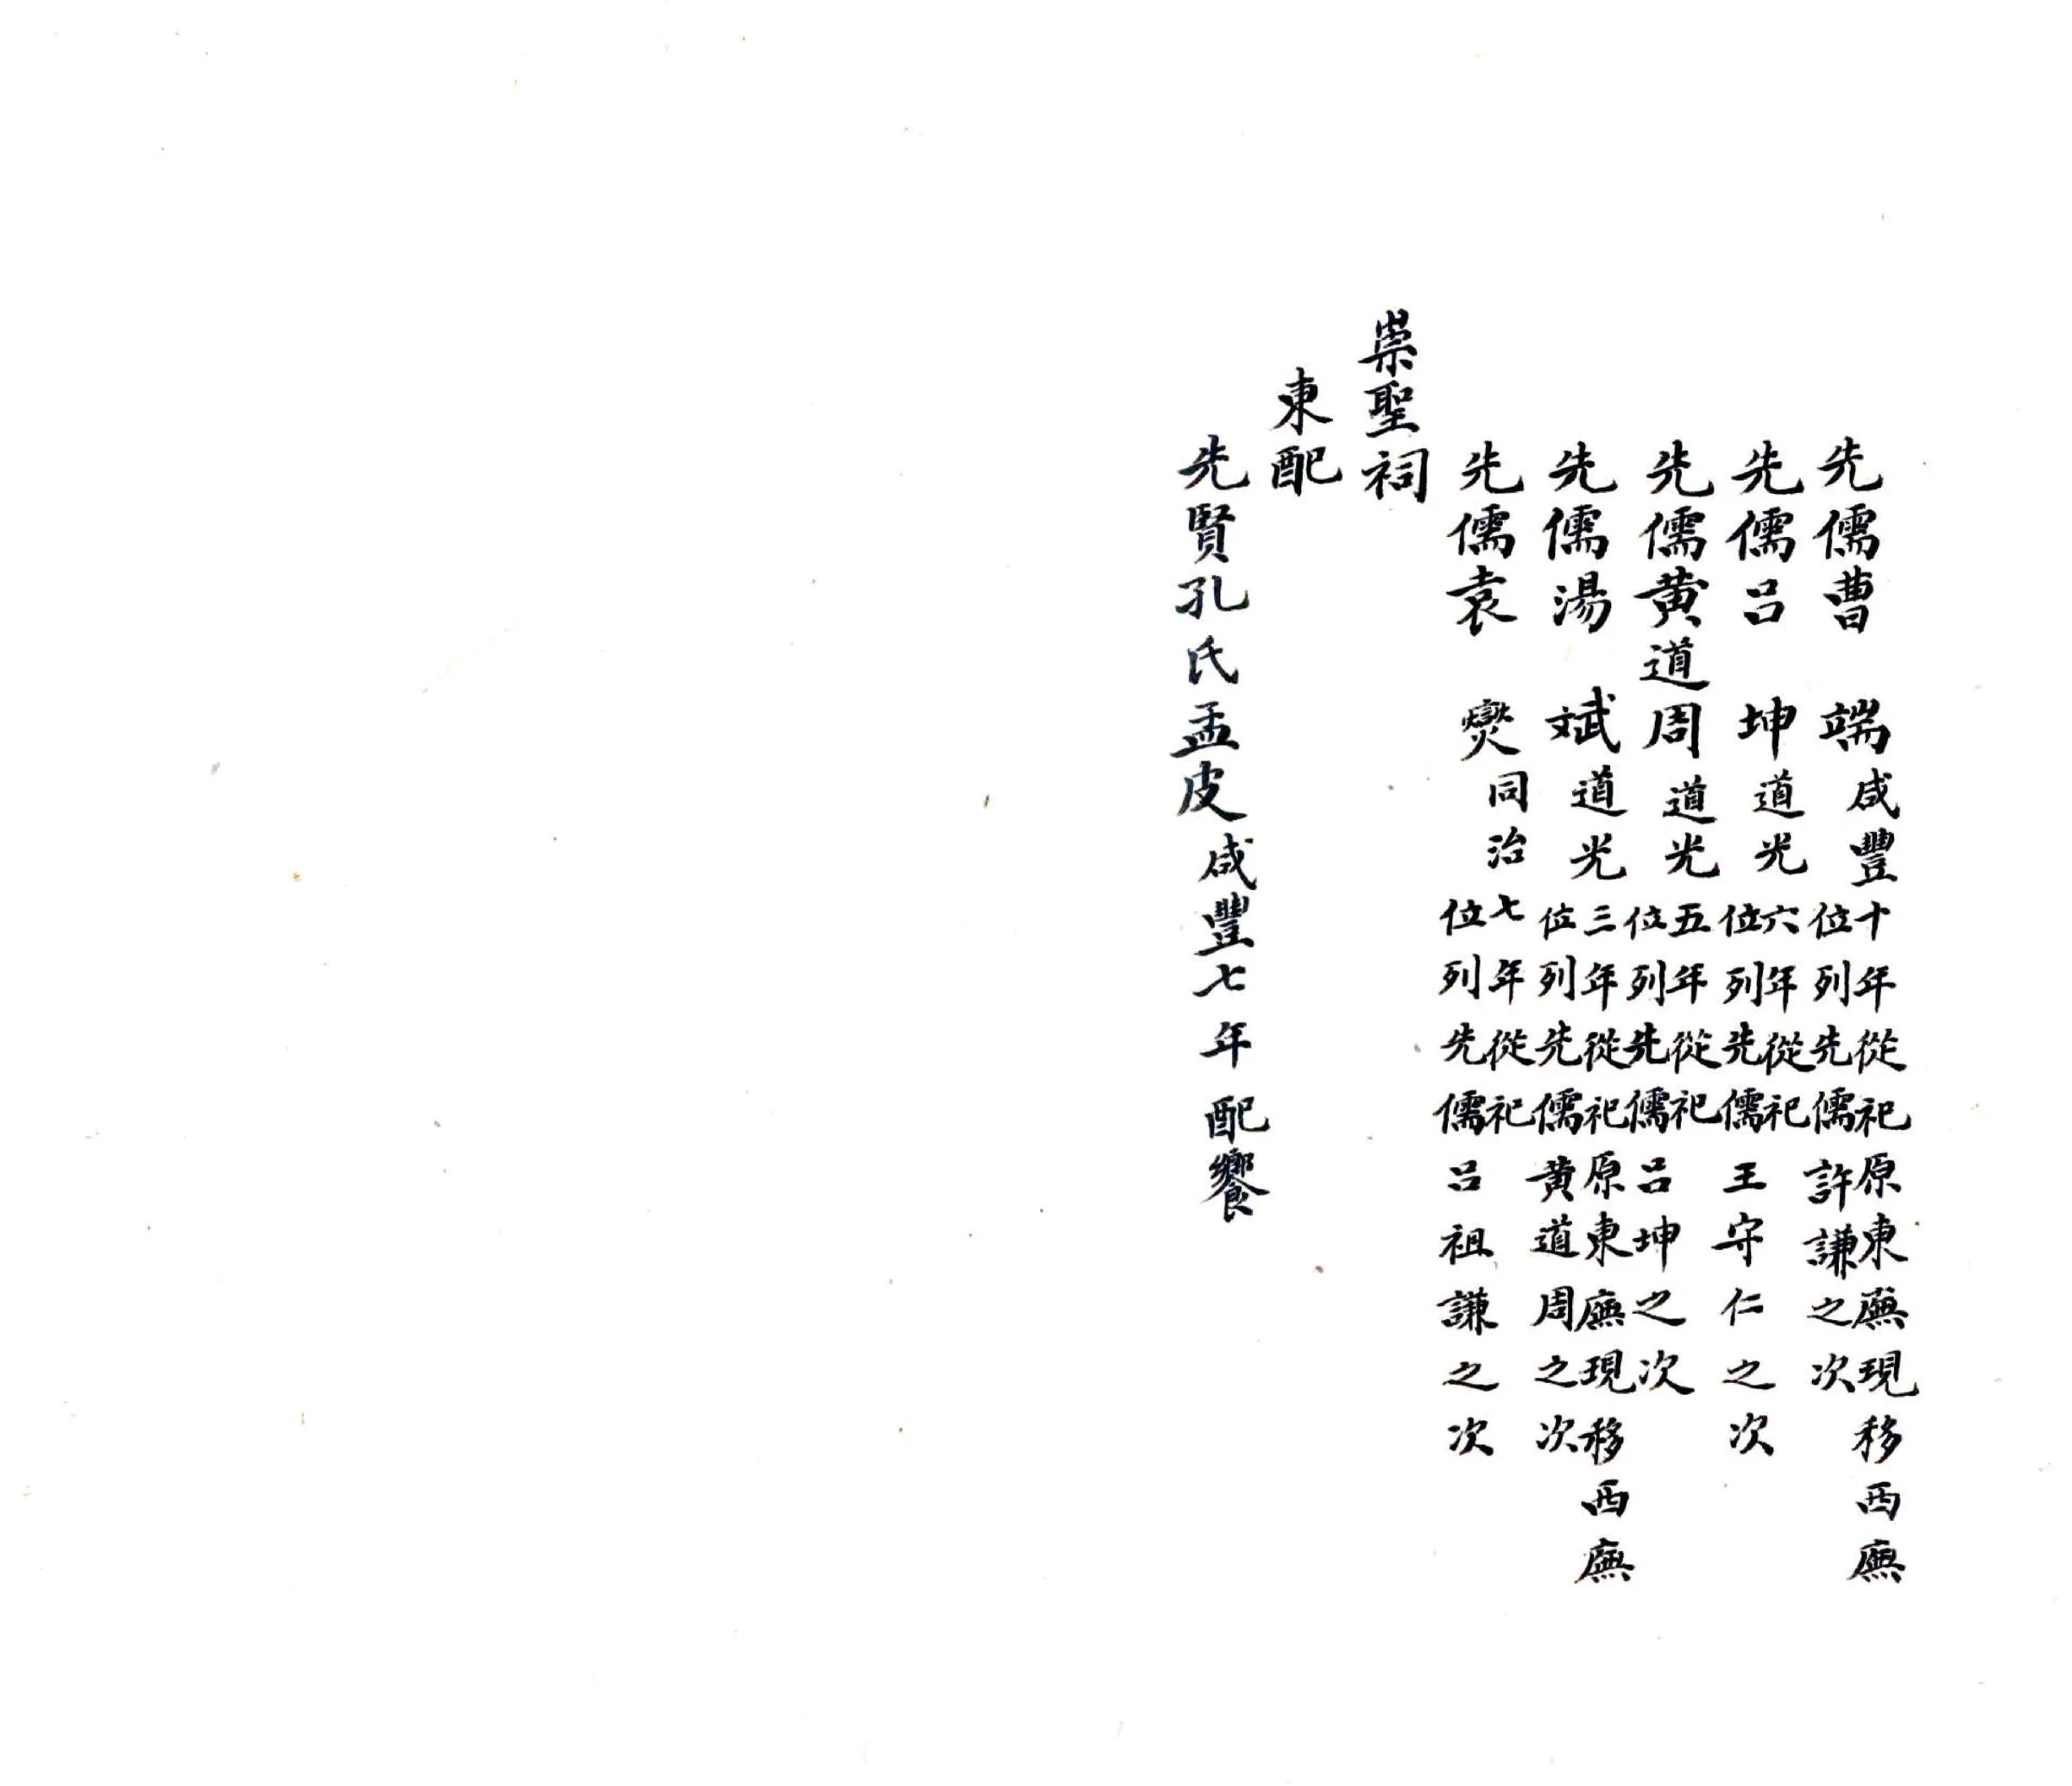 先儒曹　端咸豐十年從祀原東廡現移西廡位列先儒許謙之次
先儒呂　坤道光六年從祀位列先儒王守仁之次
先儒黄道周道光五年從祀位列先儒呂坤之次
先儒湯　斌道光三年從祀原東廡現移西廡位列先儒黄道周之次
先儒袁　燮同治七年從祀位列先儒呂祖謙之次
崇聖祠
東配
先賢孔氏孟皮咸豐七年配饗